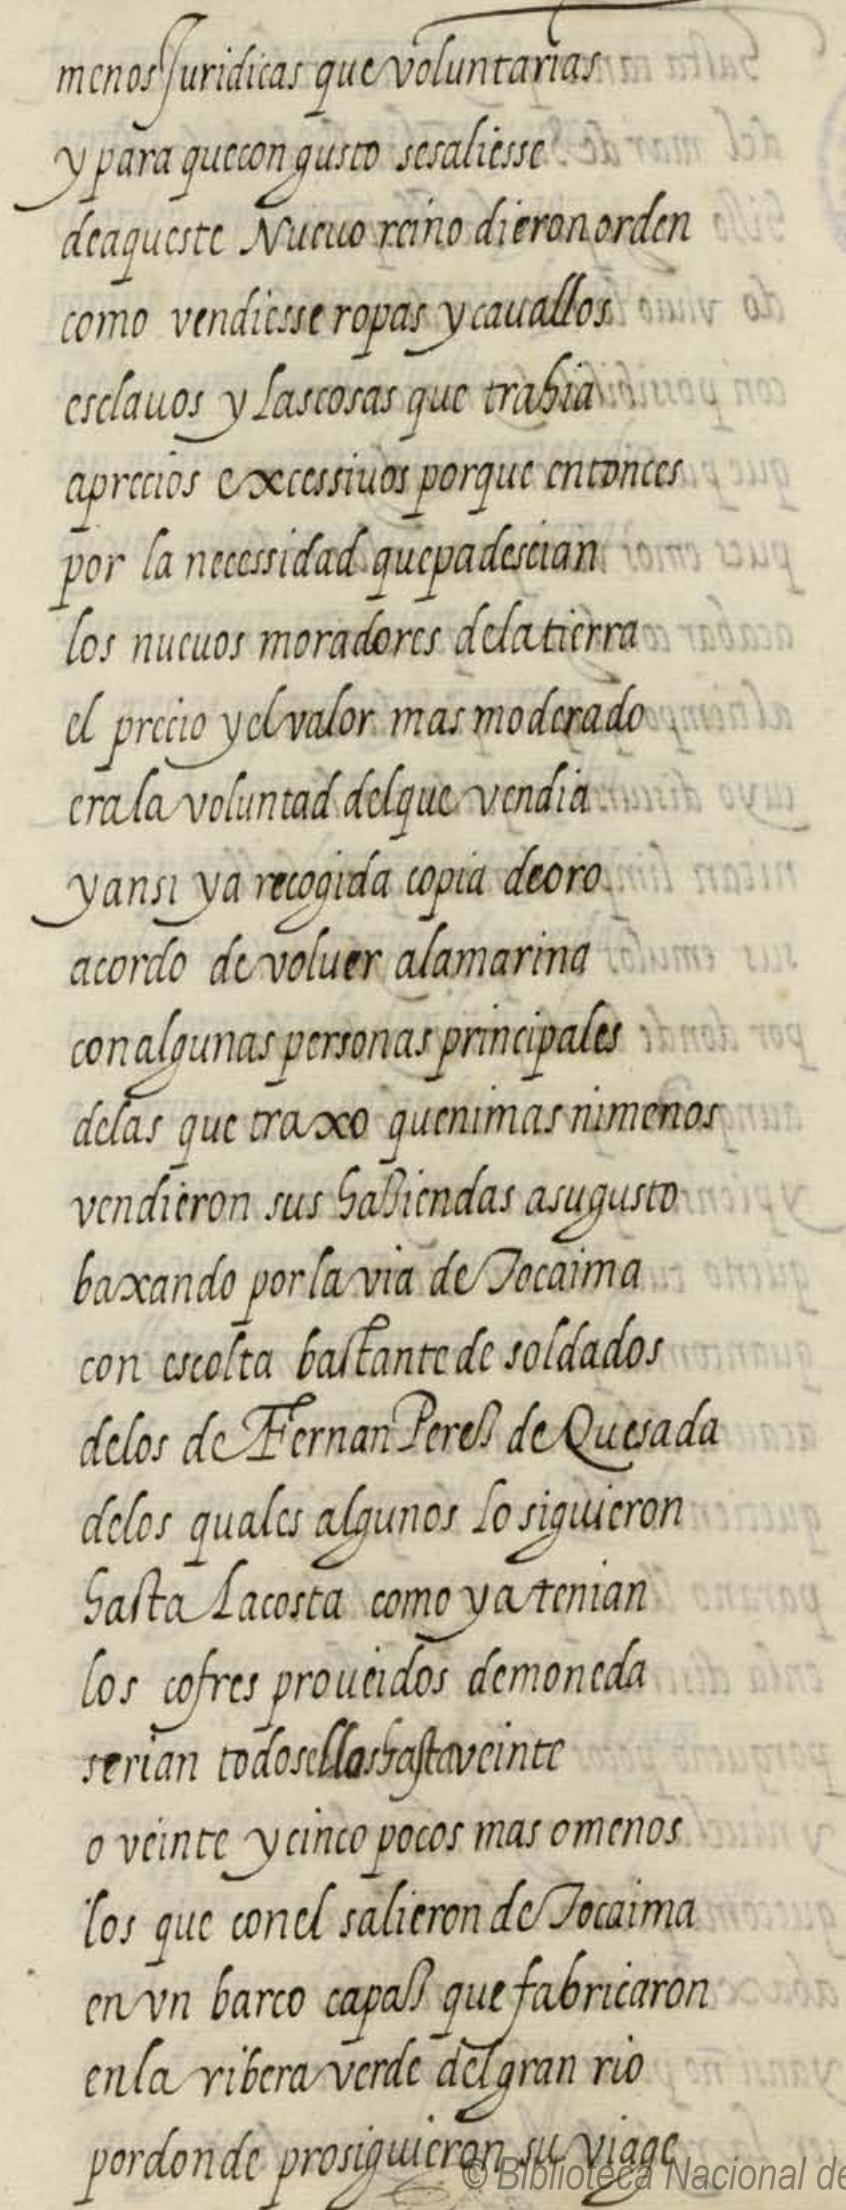 menos Juridicas que voluntarias
y para quecon gusto sesaliesse
deaqueste Nueuo reino dieron orden
como vendiesse ropas y cauallos
esclauos y lascosas que trahia
aprecios excessiuos porque entonces
por la necessidad quepadescian
los nueuos moradores delatierra
el precio yelvalor mas moderado
erala voluntad delque vendia
yansi ya recogida copia deoro
acordo de voluer alamarina
conalgunas personas principales
delas que traxo quenimas nimenos
vendieron sus haziendas asugusto
baxando porla via de Tocaima
con escolta bastante de soldados
delos de Fernan Perez de Quesada
delos quales algunos lo siguieron
hasta Lacosta como ya tenian
los cofres proueidos demoneda
serian todosellos hasta veinte
o veinte y cinco pocos mas omenos
los que conel salieron de Tocaima
en vn barco capaz que fabricaron
enla ribera verde delgran rio
pordonde prosiguieron su viage
© Biblioteca Nacional de